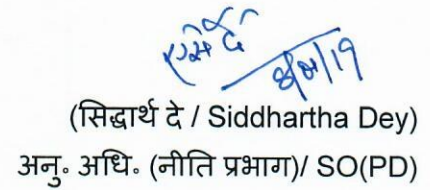 एस दे
(सिद्धार्थ दे / Siddhartha Dey)
अनु॰ अधि॰ (नीति प्रभाग)/ SO(PD)